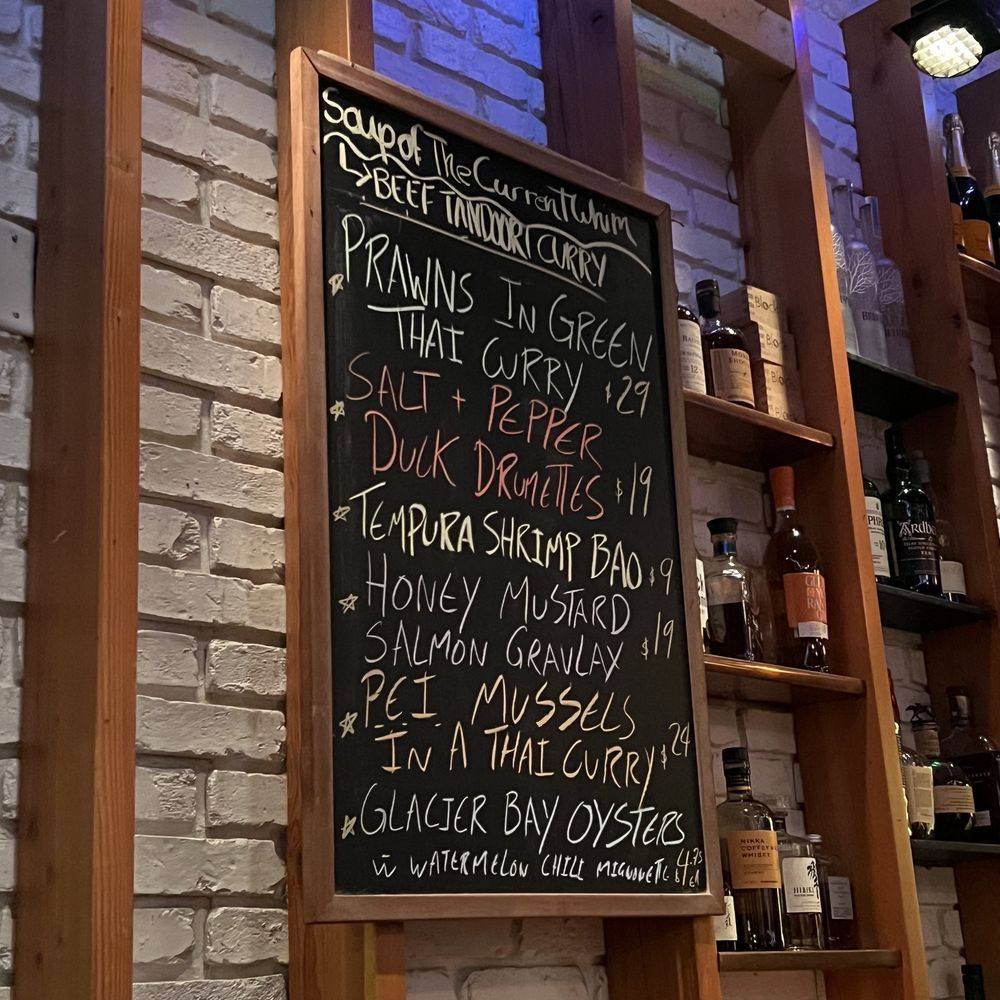 Soup of The Current Whim
BEEF TANDOORI CURRY
PRAWNS IN GREEN
THAI CURRY $29
SALT + PEPPER
DUCK DRUMETTES $19
TEMPURA SHRIMP BAO $9
HONEY MUSTARD
SALMON GRAVLAX $19
P.E.I. MUSSELS
IN A THAI CURRY $24
GLACIER BAY OYSTERS
W WATERMELON CHILI MIGNONETTE $4.75
NIKKA
COFFEY
WHISKY
HIBIKI
Ardbeg